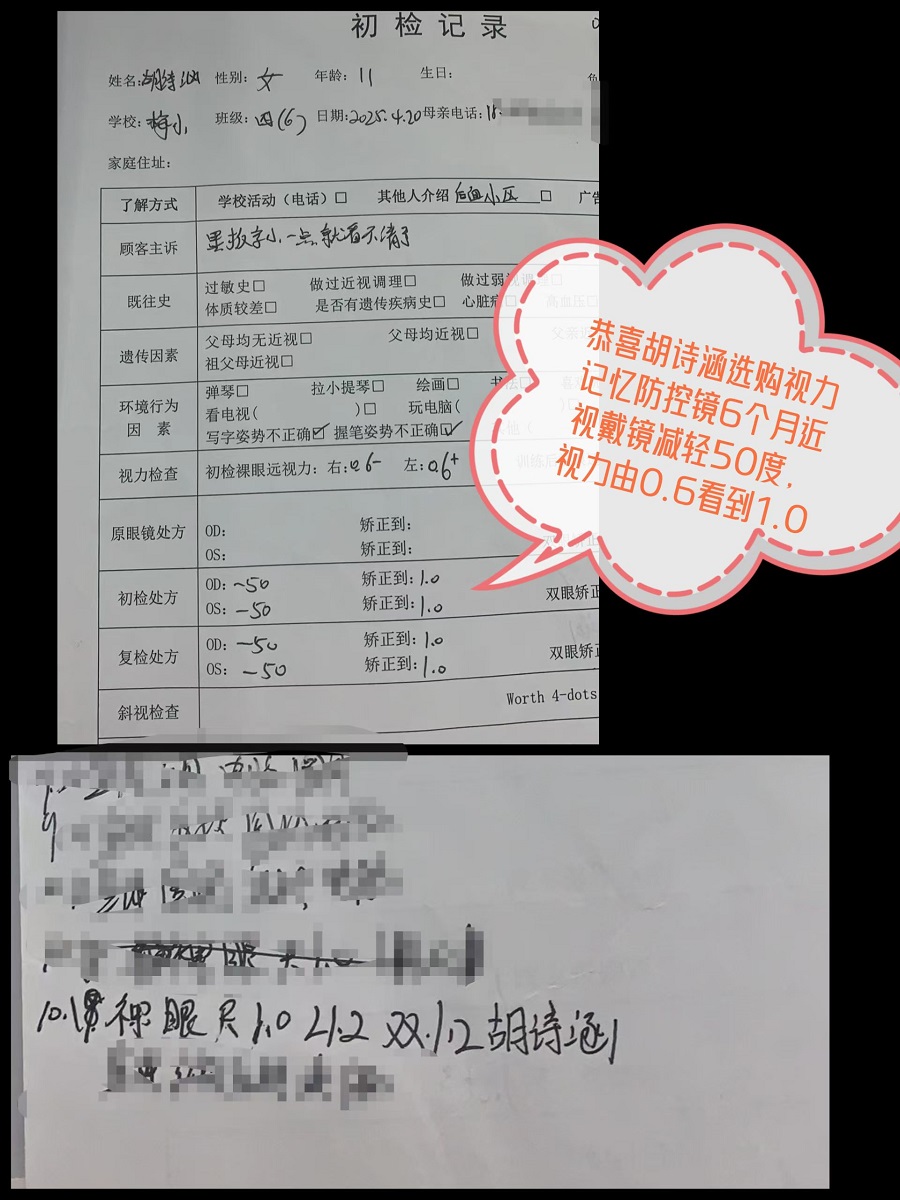 初检记录
姓名:胡诗涵 性别:女 年龄:11 生日:
学校:梅小 班级:四(6) 日期:2025.4.20 母亲电话:18
家庭住址:
了解方式 学校活动（电话）□ 其他人介绍 □ 广告
顾客主诉 黑板字小一点就看不清了
既往史 过敏史□ 做过近视调理□ 做过弱视调理□
体质较差□ 是否有遗传疾病史□ 心脏病□ 高血压□
遗传因素 父母均无近视□ 父母均近视□ 父亲近
祖父母近视□
环境行为因素 弹琴□ 拉小提琴□ 绘画□ 书法□
看电视( )□ 玩电脑( )□
写字姿势不正确☑ 握笔姿势不正确☑ 其他(
视力检查 初检裸眼远视力: 右:0.6- 左:0.6+ 训练后
原眼镜处方 OD: 矫正到:
OS: 矫正到:
初检处方 OD: -50 矫正到: 1.0
OS: -50 矫正到: 1.0 双眼矫正
复检处方 OD: -50 矫正到: 1.0
OS: -50 矫正到: 1.0 双眼矫正
斜视检查 Worth 4-dots
恭喜胡诗涵选购视力
记忆防控镜6个月近
视戴镜减轻50度，
视力由0.6看到1.0
裸眼R1.0 L1.2 双.1.2 胡诗涵